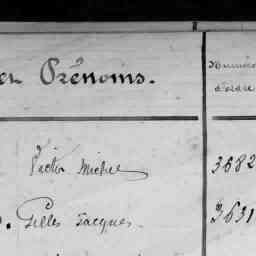 et Prénoms.
Numéro
d'ordre
Victor Michel 3682
Gilles Jacques. 3631